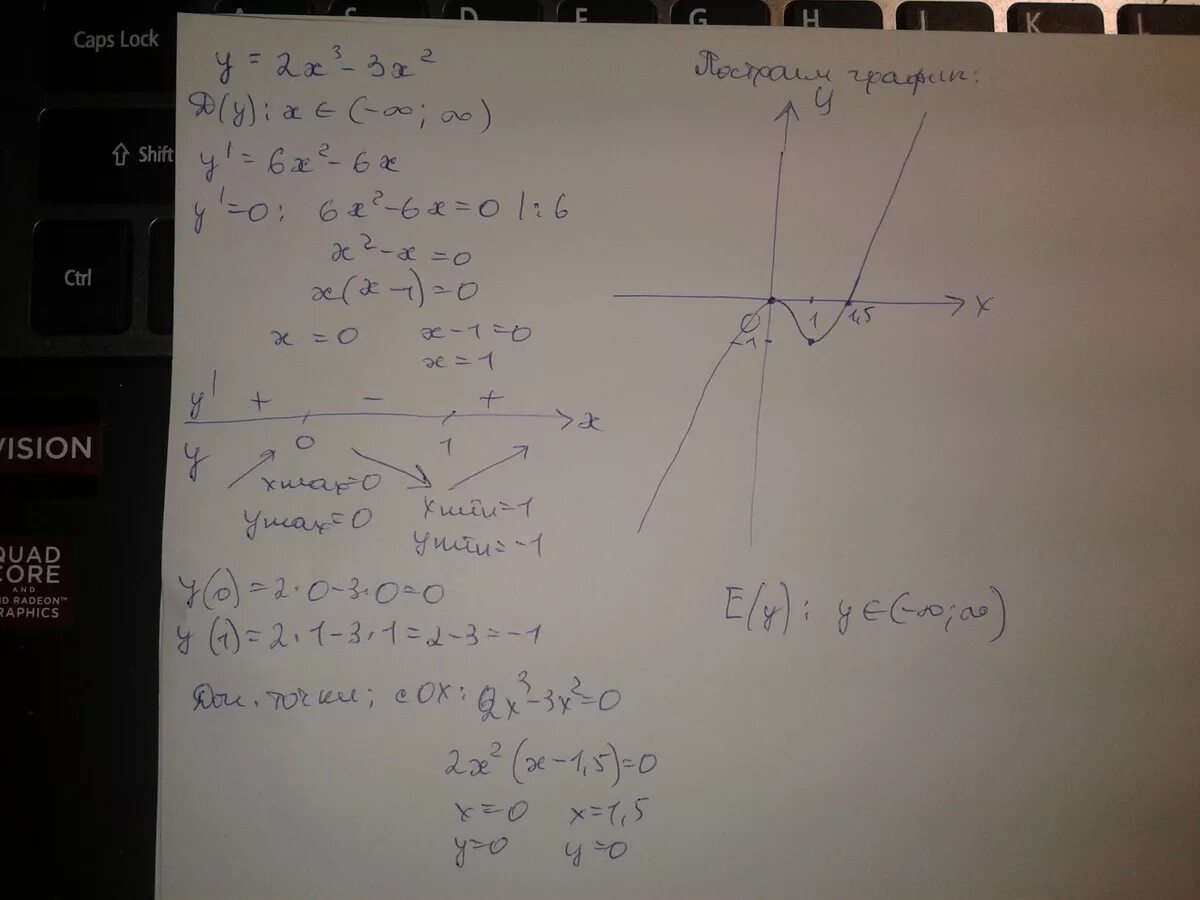 Caps Lock
Shift
Ctrl
A
S
D
F
G
H
J
K
L
VISION
QUAD
CORE
AND
RADEON™
RAPHICS
y = 2x³ - 3x²
Д(y): x ∈ (-∞; ∞)
y' = 6x² - 6x
y' = 0: 6x² - 6x = 0 | : 6
x² - x = 0
x(x - 1) = 0
x = 0 x - 1 = 0
x = 1
y' + - +
0 1 x
y
xmax = 0
ymax = 0
xmin = 1
ymin = -1
y(0) = 2·0 - 3·0 = 0
y(1) = 2·1 - 3·1 = 2 - 3 = -1
Доп. точки; с OX: 2x³ - 3x² = 0
2x² (x - 1,5) = 0
x = 0 x = 1,5
y = 0 y = 0
Построим график:
y
0 1 1,5 x
-1
E(y): y ∈ (-∞; ∞)